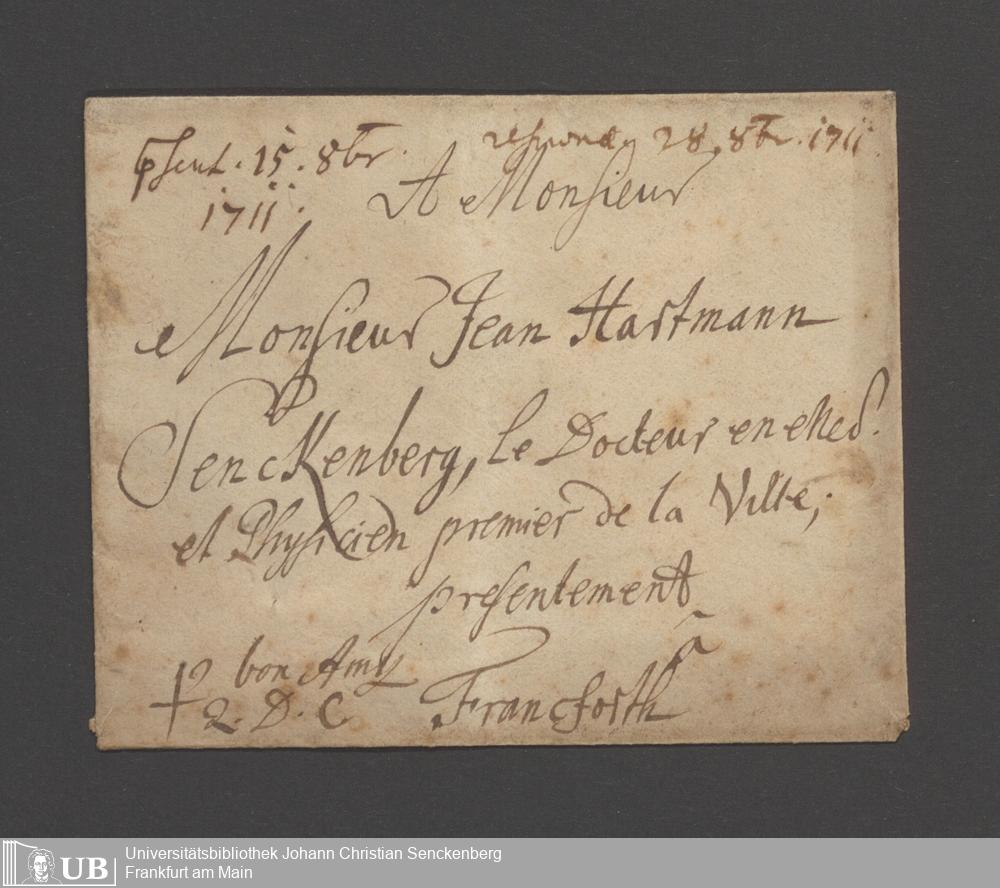 psent. 15. 8br.
1711.
respond. 28. 8br. 1711.
A Monsieur
Monsieur Jean Hartmann
Senckenberg, le Docteur en Med.
et Physicien premier de la Ville,
presentement
à
bon Amy
2. D. C
Francforth
UB
Universitätsbibliothek Johann Christian Senckenberg
Frankfurt am Main